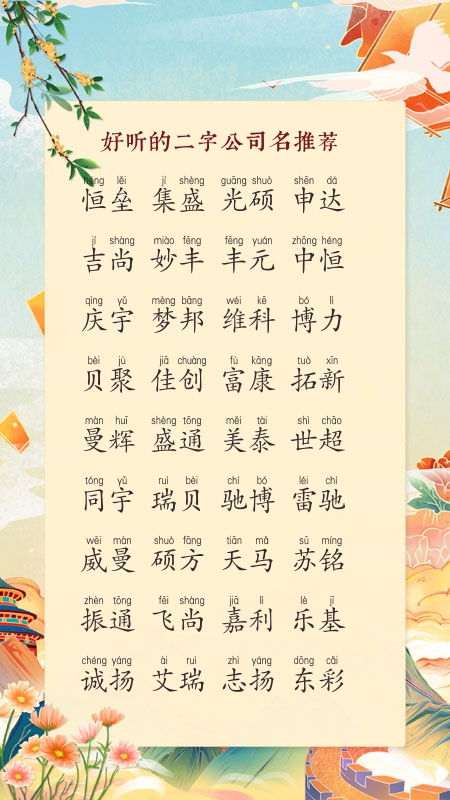 好听的二字公司名推荐
héng lěi jí shèng guāng shuò shēn dá
恒垒 集盛 光硕 申达
jí shàng miào fēng fēng yuán zhōng héng
吉尚 妙丰 丰元 中恒
qìng yǔ mèng bāng wéi kē bó lì
庆宇 梦邦 维科 博力
bèi jù jiā chuàng fù kāng tuò xīn
贝聚 佳创 富康 拓新
màn huī shèng tōng měi tài shì chāo
曼辉 盛通 美泰 世超
tóng yǔ ruì bèi chí bó léi chí
同宇 瑞贝 驰博 雷驰
wēi màn shuò fāng tiān mǎ sū míng
威曼 硕方 天马 苏铭
zhèn tōng fēi shàng jiā lì lè jī
振通 飞尚 嘉利 乐基
chéng yáng ài ruì zhì yáng dōng cǎi
诚扬 艾瑞 志扬 东彩